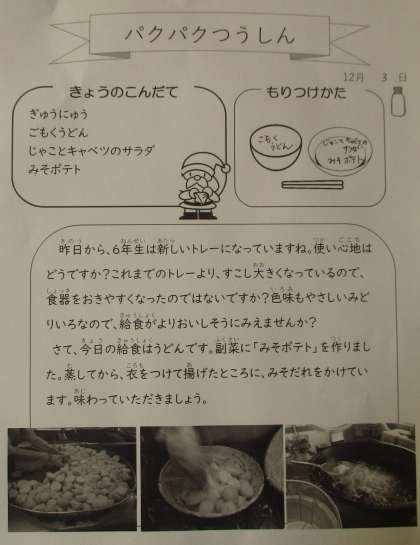 パクパクつうしん
12月 3 日
きょうのこんだて
ぎゅうにゅう
ごもくうどん
じゃことキャベツのサラダ
みそポテト
もりつけかた
ごもく
うどん
じゃことキャベツの
サラダ
みそポテト
昨日から、6年生は新しいトレーになっていますね。使い心地は
どうですか?これまでのトレーより、すこし大きくなっているので、
食器をおきやすくなったのではないですか?色味もやさしいみど
りいろなので、給食がよりおいしそうにみえませんか?
さて、今日の給食はうどんです。副菜に「みそポテト」を作りまし
た。蒸してから、衣をつけて揚げたところに、みそだれをかけてい
ます。味わっていただきましょう。